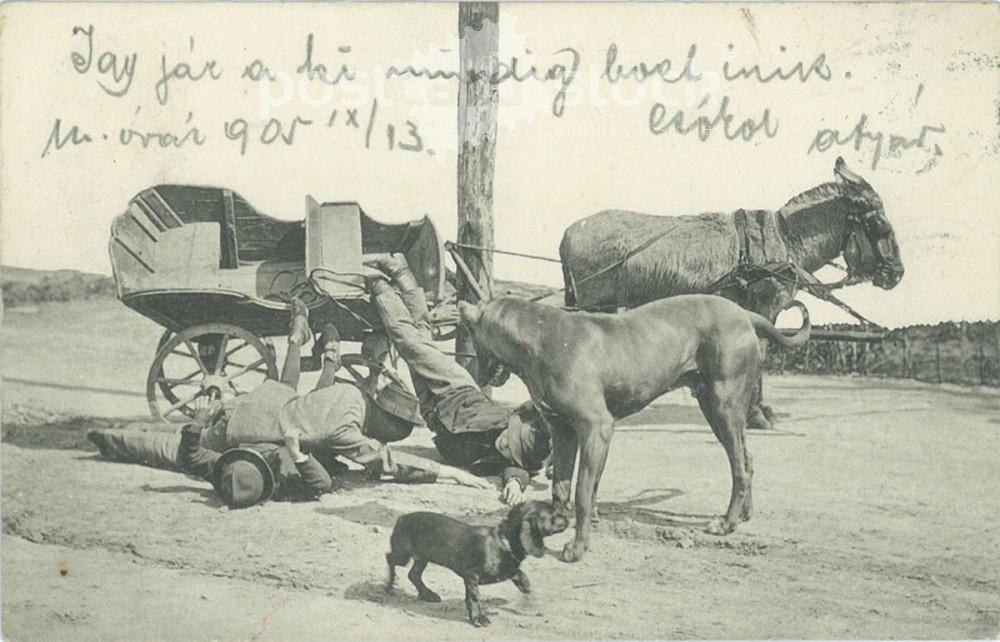 Igy jár a ki mindig bort inik.
M. óvár 905 IX/13. Csókol atyád,